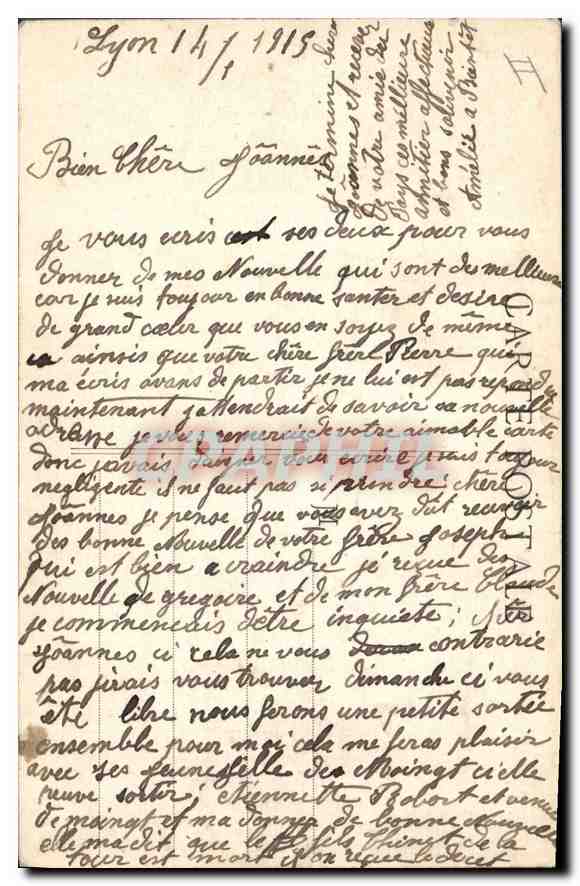 Lyon 14/1 1915
Bien Chère Jôannès
Je vous ecris ses deux pour vous
donner de mes Nouvelle qui sont des melleure
car je suis toujour en bonne santer et desire
de grand cœur que vous en soyez de même
ainsis que votre chère frère Pierre qui
ma écris avans de partir je ne lui est pas repondu
maintenant j attendrait de savoir sa nouvelle
adresse je vous remercie de votre aimable carte
donc javais vous ecrire e suis toujour
negligente il ne faut pas si prendre; chère
Jôannes je pense que vous avez dût recevoir
des bonne Nouvelle de votre frère Joseph
qui est bien a craindre jé reçue des
Nouvelle de gregoire et de mon frère Claude
je commencais dêtre inquiete;
Jôannes ci cela ne vous contrarie
pas jirais vous trouver dimanche ci vous
ête libre nous ferons une petite sortée
ensemble pour moi cela me feras plaisir
avec ses jeune fille de Moingt ci elle
peuve sortir; etiennette et venue
de moingt et ma donner de bonne Nouvelle
elle ma dit que le fils de la
tour est mort on reçue le decet
Je termine chère
Jôannes et recevez
de votre amie du
Pays ces meilleure
amitier affectueuse
et bons
Amélie a Bientôt
II
CARTE POSTALE